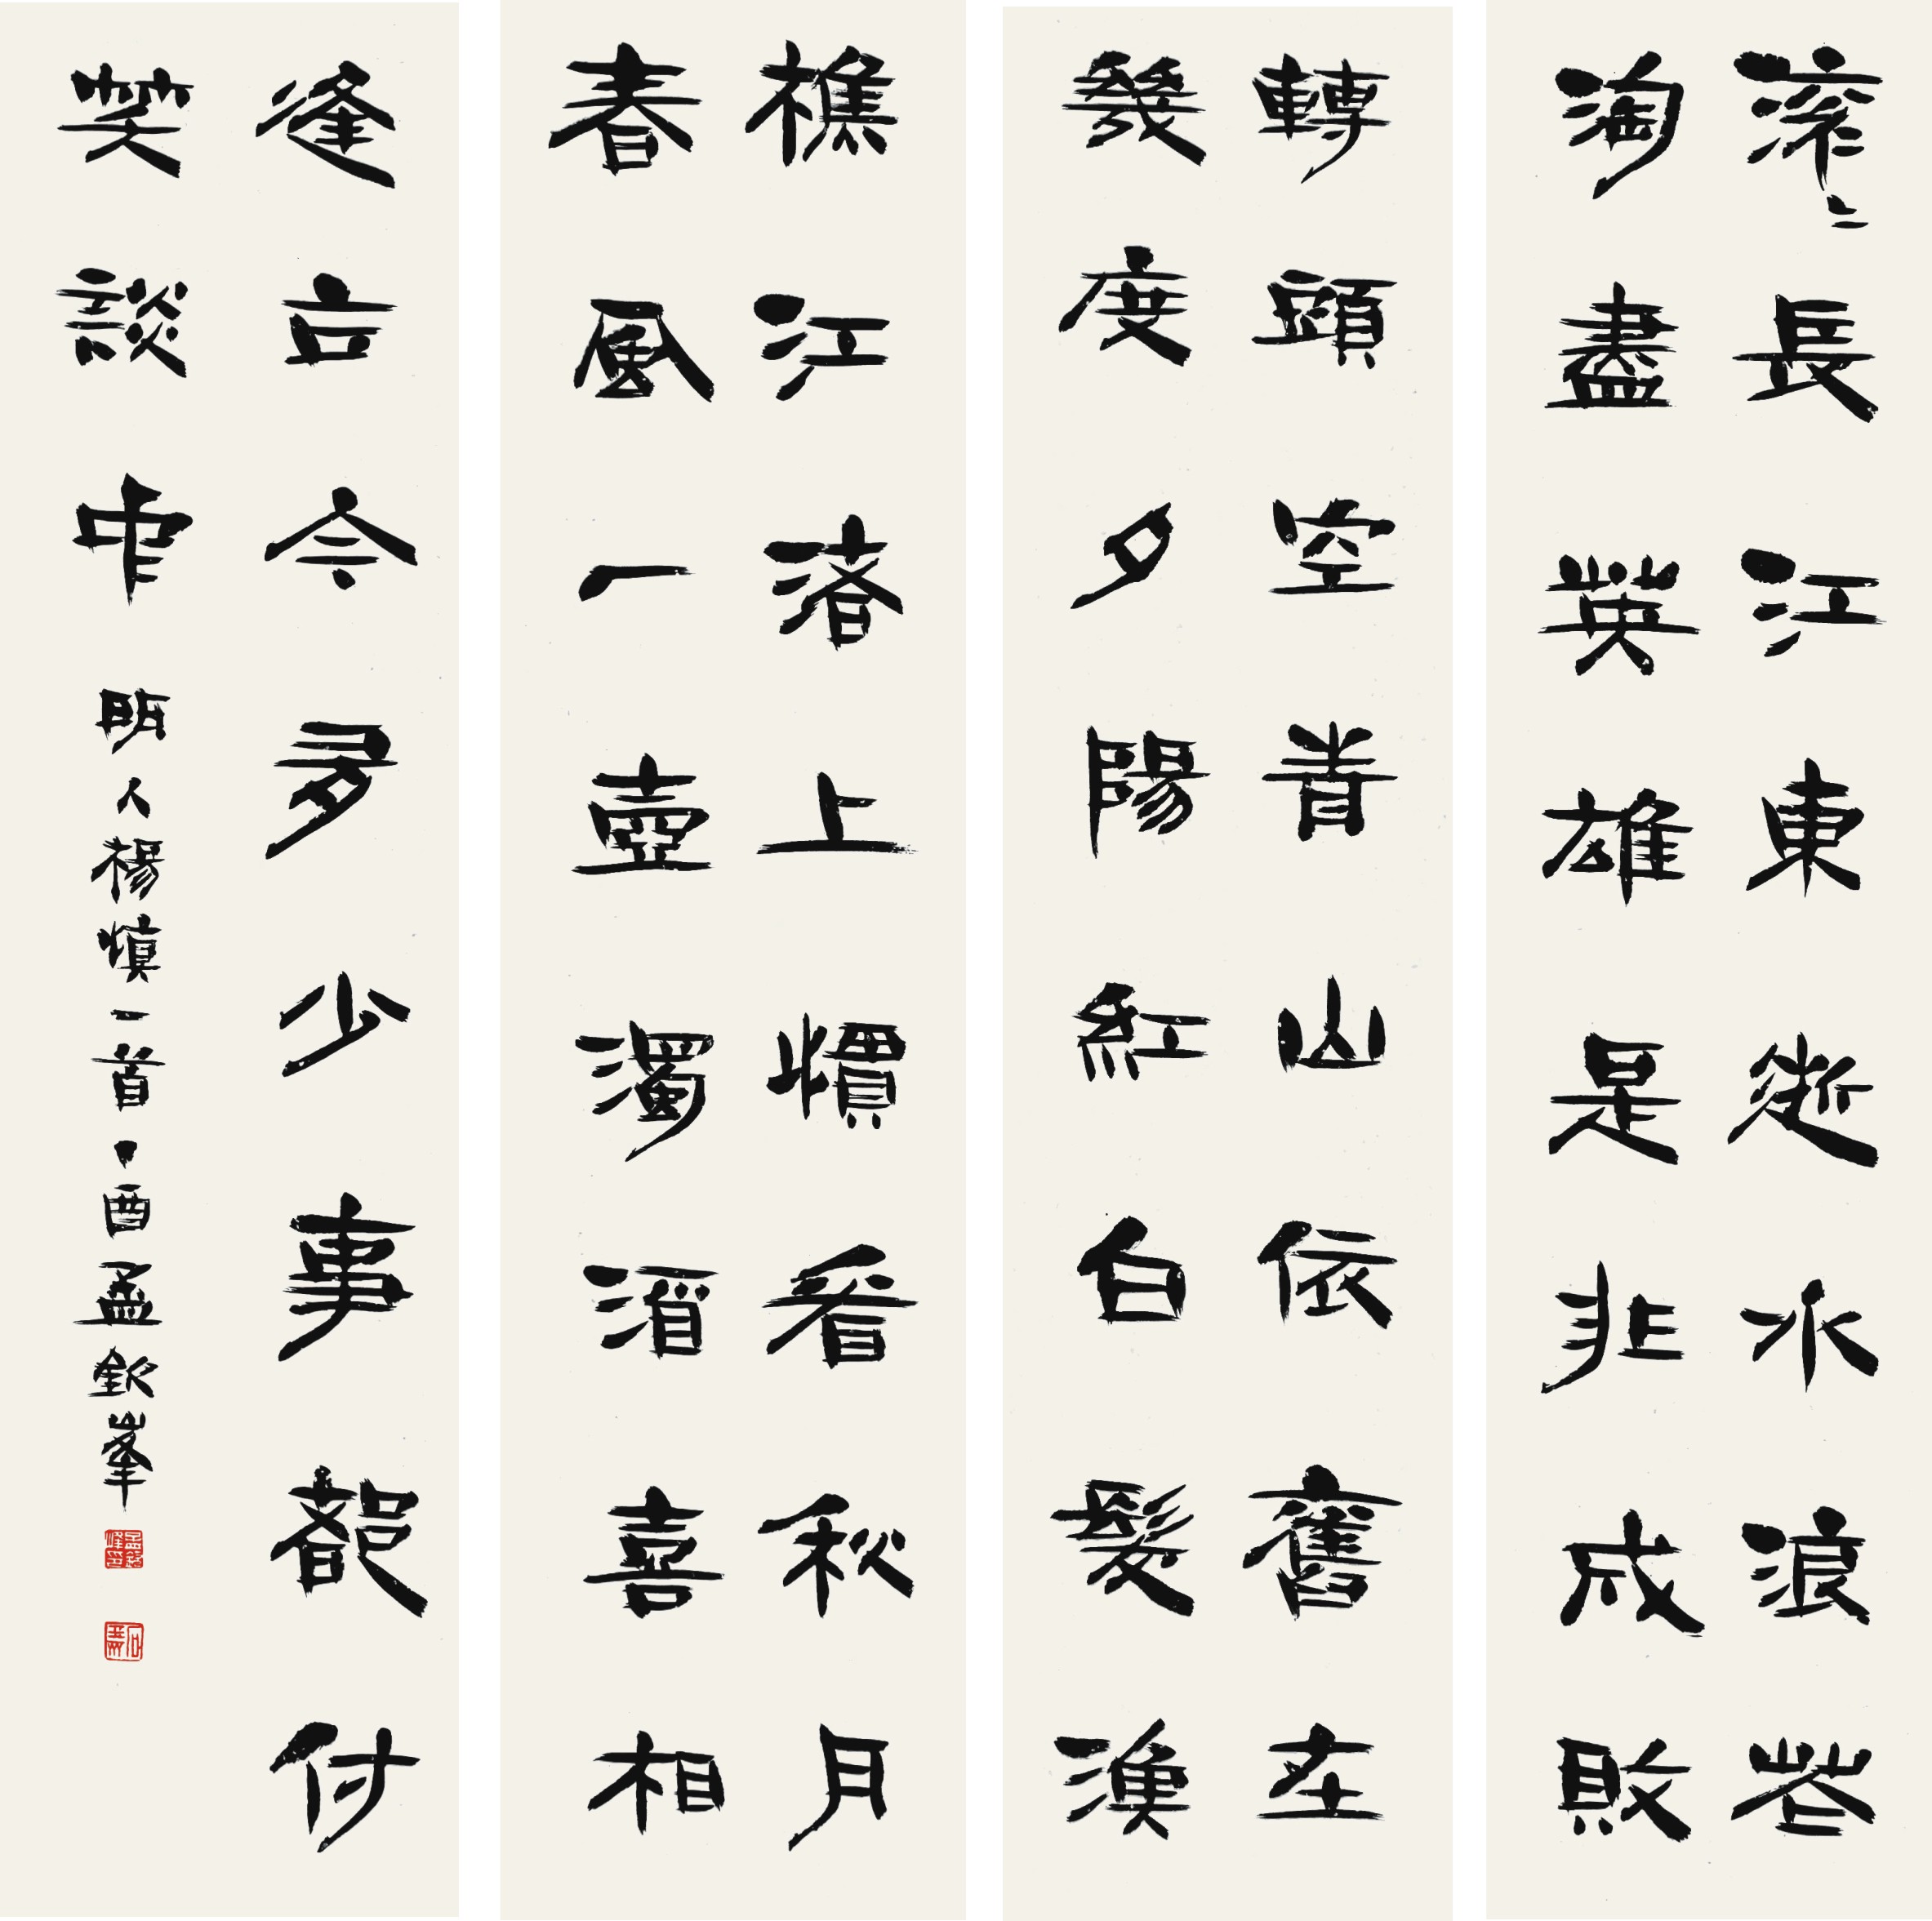 滚〻長江東逝水浪花
淘盡英雄是非成敗
轉頭空青山依舊在
幾度夕陽紅白髮漁
樵江渚上慣看秋月
春風一壺濁酒喜相
逢古今多少事都付
笑談中
明人楊慎一首丁酉孟欽峯